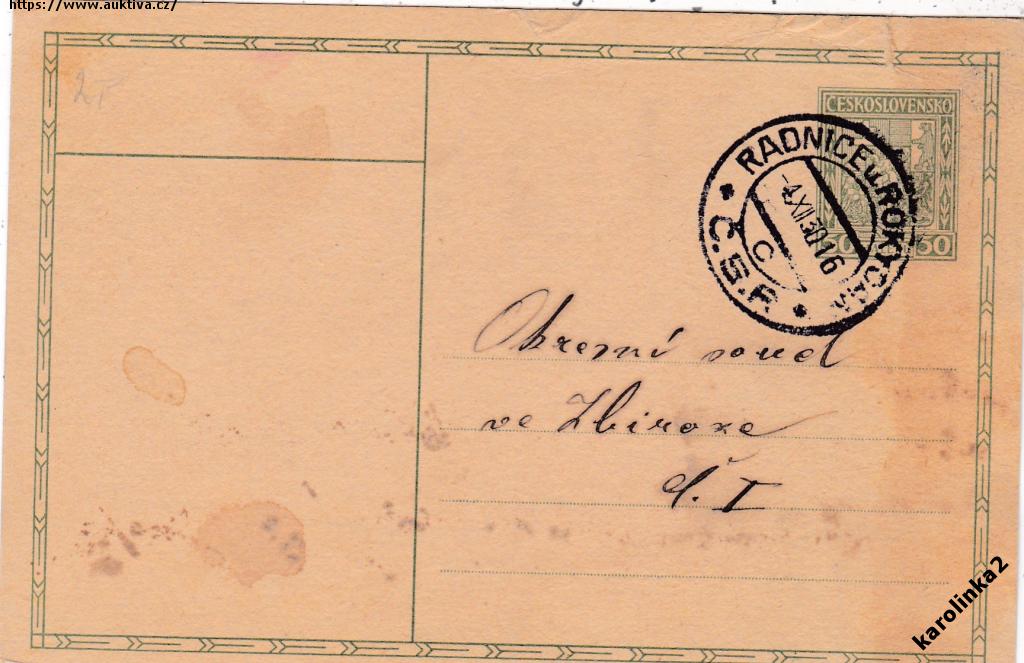 https://www.auktiva.cz/
ČESKOSLOVENSKO
50 50
RADNICE u ROKYCAN
-4.XII.30-16
C
Č.S.R.
Okresní soud
ve Zbiroze
č. I
karolinka2